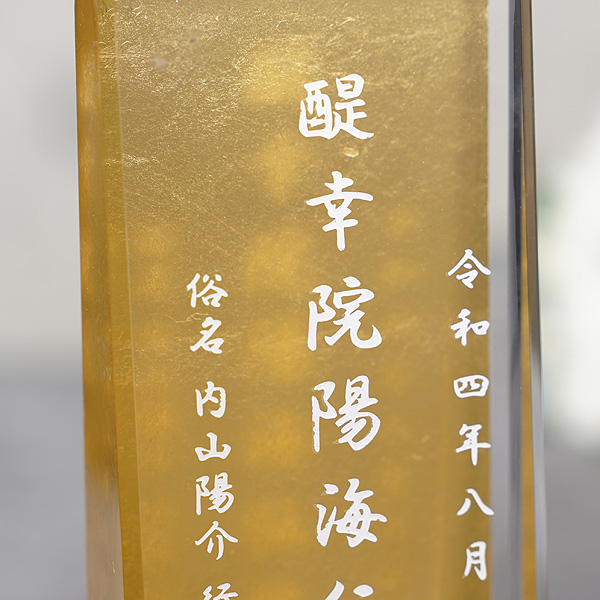 令和四年八月
醍幸院陽海
俗名 内山陽介